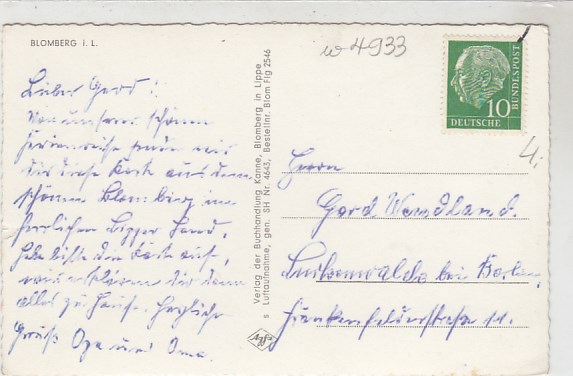 BLOMBERG i. L.
w 4933
Lieber Gerd!
Von unserer schönen
Ferienreise senden wir
dir diese Karte aus dem
schönen Blomberg im
herrlichen Lipper Land.
Hebe bitte die Karte auf,
wir erklären dir dann
alles zu Hause. Herzliche
Grüße Opa und Oma.
Verlag der Buchhandlung Kanne, Blomberg in Lippe
s Luftaufnahme, gen. SH Nr. 4645, Bestellnr. Blom Flg 2546
10
DEUTSCHE
BUNDESPOST
4.-
Herrn
Gerd Wendland.
Luckenwalde bei Berlin,
Frankenfelderstraße 11.